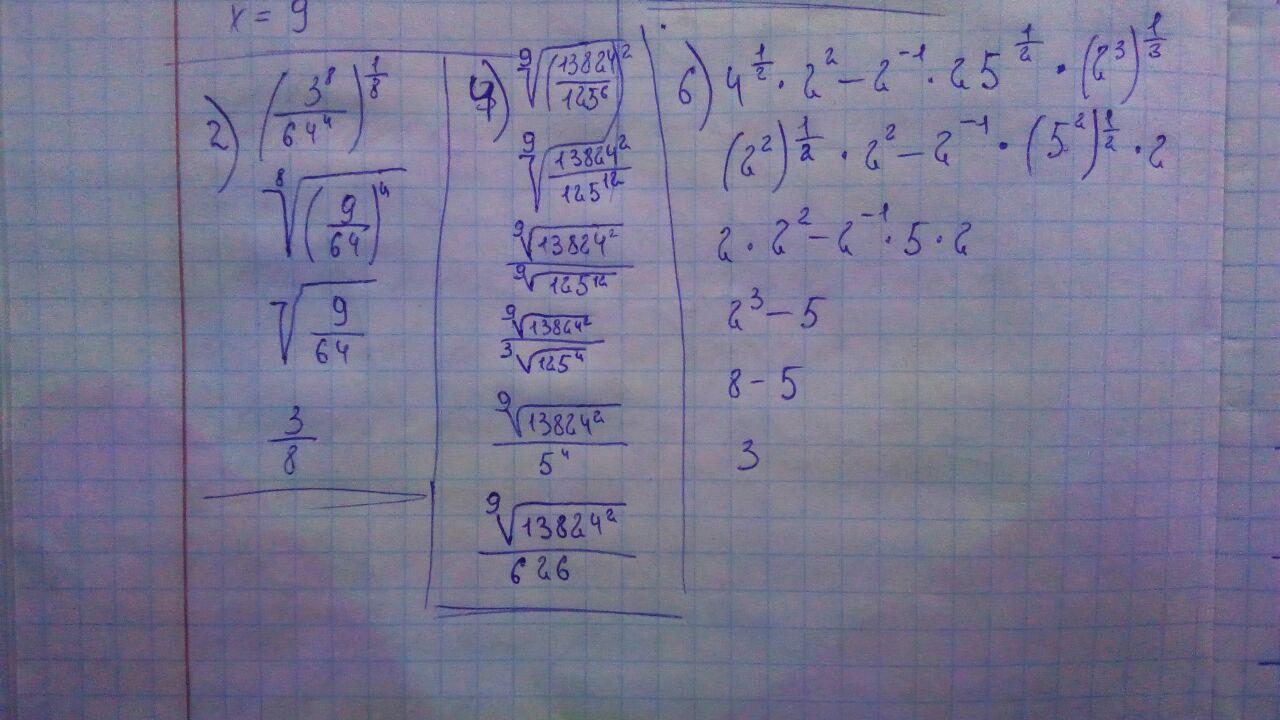 x = 9
2) (3⁸/64⁴)^(1/8)
⁸√((9/64)⁴)
√(9/64)
3/8
4) ⁹√((13824/125⁶)²)
⁹√(13824²/125¹²)
⁹√(13824²)/⁹√(125¹²)
⁹√(13824²)/³√(125⁴)
⁹√(13824²)/5⁴
⁹√(13824²)/626
6) 4^(1/2) · 2² − 2⁻¹ · 25^(1/2) · (2³)^(1/3)
(2²)^(1/2) · 2² − 2⁻¹ · (5²)^(1/2) · 2
2 · 2² − 2⁻¹ · 5 · 2
2³ − 5
8 − 5
3